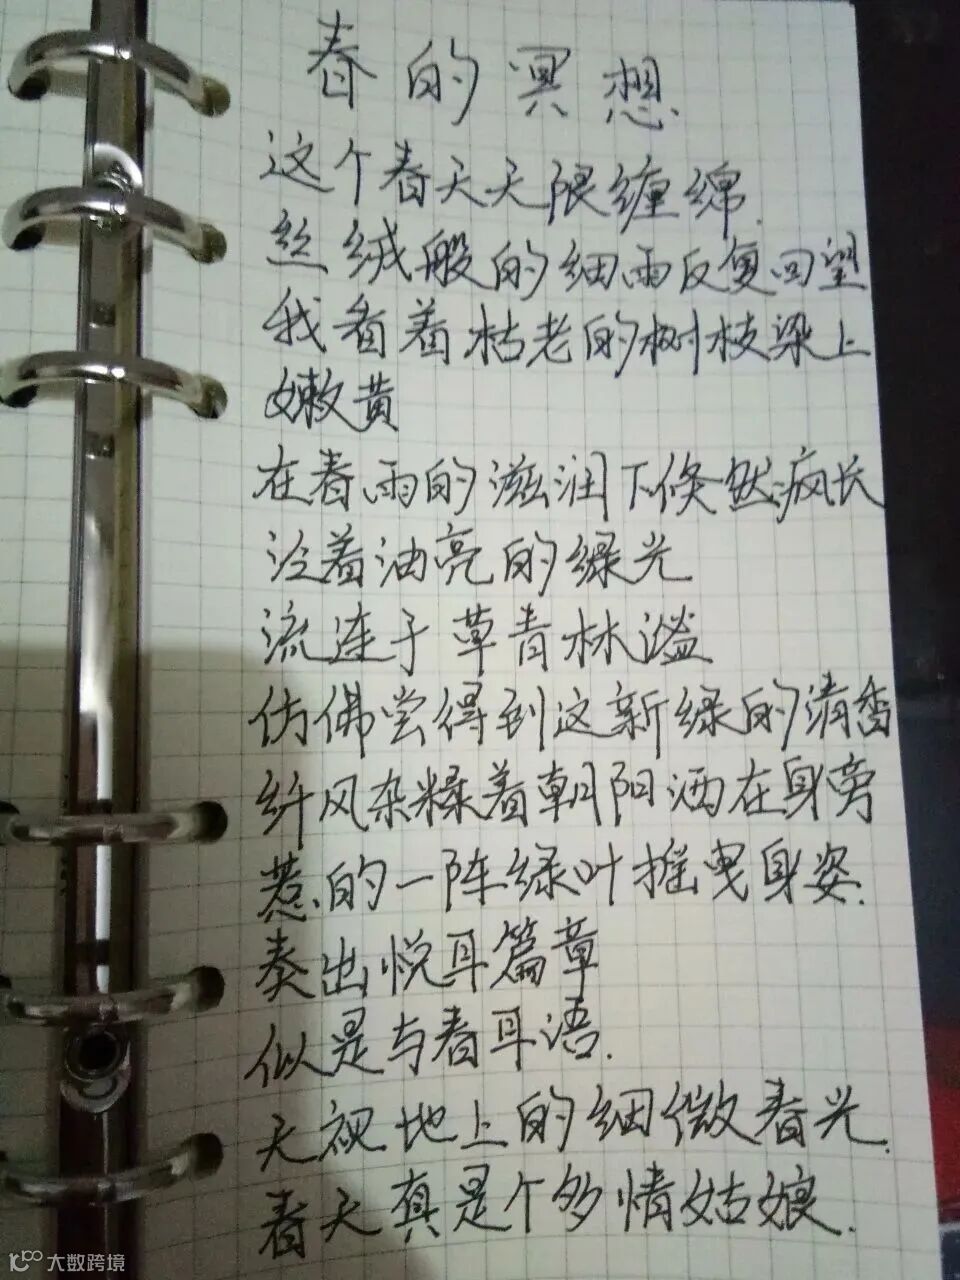 春的冥想.
这个春天无限缠绵.
丝绒般的细雨反复回望
我看着枯老的树枝染上
嫩黄
在春雨的滋润下倏然疯长
泛着油亮的绿光
流连于草青林溢
仿佛尝得到这新绿的清香
纤风杂糅着朝阳洒在身旁
惹的一阵绿叶摇曳身姿.
奏出悦耳篇章
似是与春耳语.
无视地上的细微春光.
春天真是个多情姑娘.
大数跨境